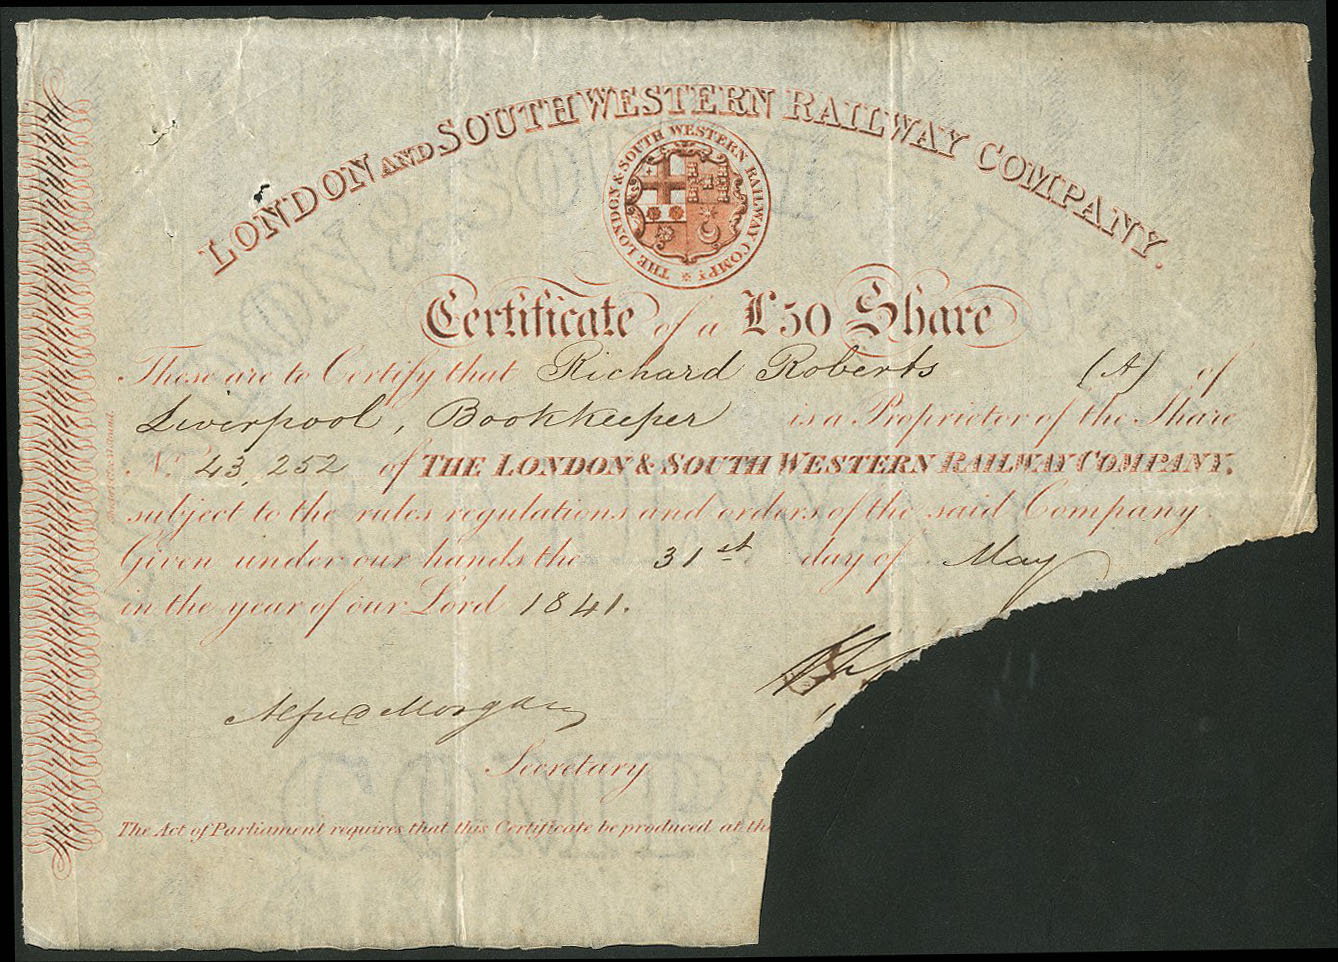 LONDON AND SOUTH WESTERN RAILWAY COMPANY.
THE LONDON & SOUTH WESTERN RAILWAY COMPY
Certificate of a £50 Share
These are to Certify that Richard Roberts (A) of
Liverpool, Bookkeeper is a Proprietor of the Share
No. 43,252 of THE LONDON & SOUTH WESTERN RAILWAY COMPANY.
subject to the rules regulations and orders of the said Company
Given under our hands the 31st day of May
in the year of our Lord 1841.
Alfred Morgan
Secretary
The Act of Parliament requires that this Certificate be produced at the